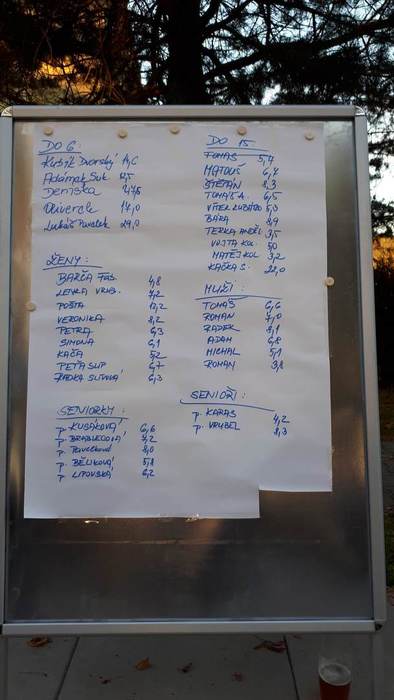 DO 6
Kubík Dvorský 14,6
Adámek Suk 12,5
Deniska 27,5
Oliverek 17,0
Lukáš Pavelek 29,0
DO 15
TOMÁŠ 5,4
MATOUŠ 6,7
ŠTĚPÁN 8,3
TOMÁŠ A. 6,5
VÍTEK 5,3
BÁRA 8,9
TERKA 3,5
VOJTA KOL. 5,0
MATĚJ KOL. 3,2
KAČKA S. 22,0
ŽENY :
BARČA 4,8
LENKA 7,2
POŠTA 12,2
VERONIKA 8,2
PETRA 6,3
SIMONA 6,1
KAČA 5,2
PEŤA 6,7
RADKA 6,3
MUŽI :
TOMÁŠ 6,6
ROMAN 7,0
RADEK 8,1
ADAM 6,8
MICHAL 5,1
ROMAN 3,8
SENIORKY :
p. KUSÁKOVÁ 6,6
p. BRABLECOVÁ 7,2
p. 8,0
p. BĚLÍKOVÁ 5,8
p. LIPOVSKÁ 6,2
SENIOŘI :
p. KARAS 4,2
p. VRUBEL 8,3